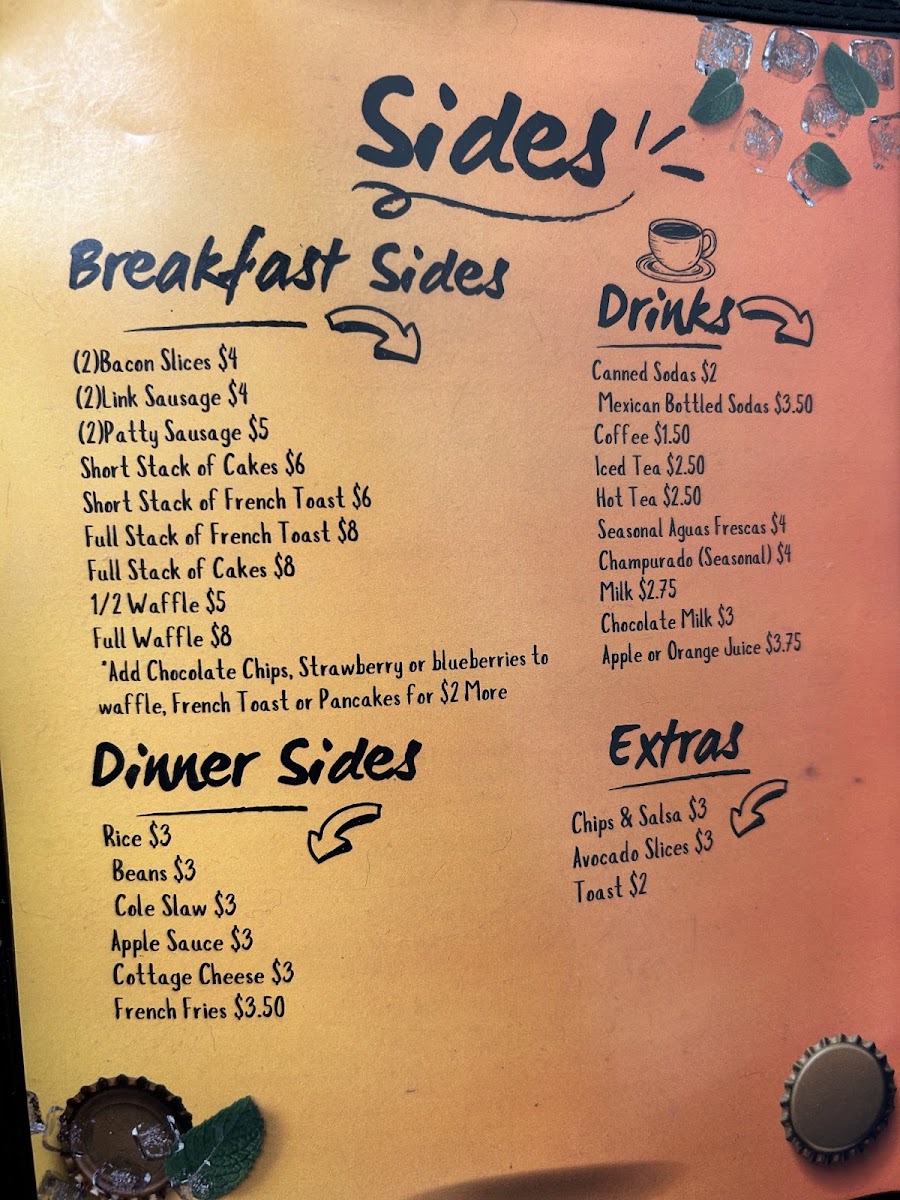 Sides
Breakfast Sides
(2)Bacon Slices $4
(2)Link Sausage $4
(2)Patty Sausage $5
Short Stack of Cakes $6
Short Stack of French Toast $6
Full Stack of French Toast $8
Full Stack of Cakes $8
1/2 Waffle $5
Full Waffle $8
*Add Chocolate Chips, Strawberry or blueberries to
waffle, French Toast or Pancakes for $2 More
Dinner Sides
Rice $3
Beans $3
Cole Slaw $3
Apple Sauce $3
Cottage Cheese $3
French Fries $3.50
Drinks
Canned Sodas $2
Mexican Bottled Sodas $3.50
Coffee $1.50
Iced Tea $2.50
Hot Tea $2.50
Seasonal Aguas Frescas $4
Champurado (Seasonal) $4
Milk $2.75
Chocolate Milk $3
Apple or Orange Juice $3.75
Extras
Chips & Salsa $3
Avocado Slices $3
Toast $2